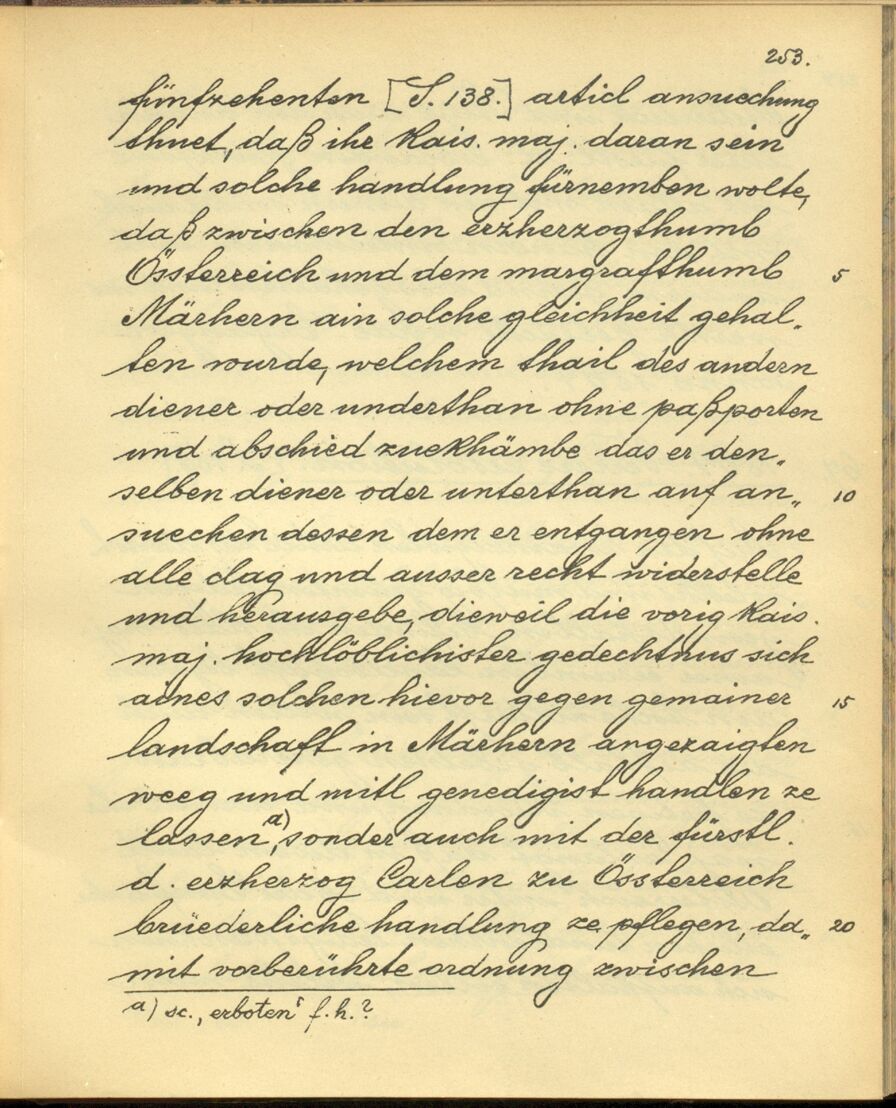 253.
fünfzehenten [S. 138.] articl ansuechung
thuet, daß ihr Kais. maj. daran sein
und solche handlung fürnemben wolte,
daß zwischen den erzherzogthumb
Össterreich und dem margrafthumb 5
Märhern ain solche gleichheit gehal„
ten wurde, welchem thail des andern
diener oder underthan ohne paßporten
und abschied zuekhämbe das er den„
selben diener oder unterthan auf an„ 10
suechen dessen dem er entgangen ohne
alle clag und ausser recht widerstelle
und herausgebe, dieweil die vorig Kais.
maj. hochlöblichister gedechtnus sich
aines solchen hievor gegen gemainer 15
landschaft in Märhern angezaigten
weeg und mitl genedigist handlen ze
lassen a), sonder auch mit der fürstl.
d. erzherzog Carlen zu Össterreich
brüederliche handlung ze pflegen, da„ 20
mit vorberührte ordnung zwischen
a) sc. „erboten“ f. h.?